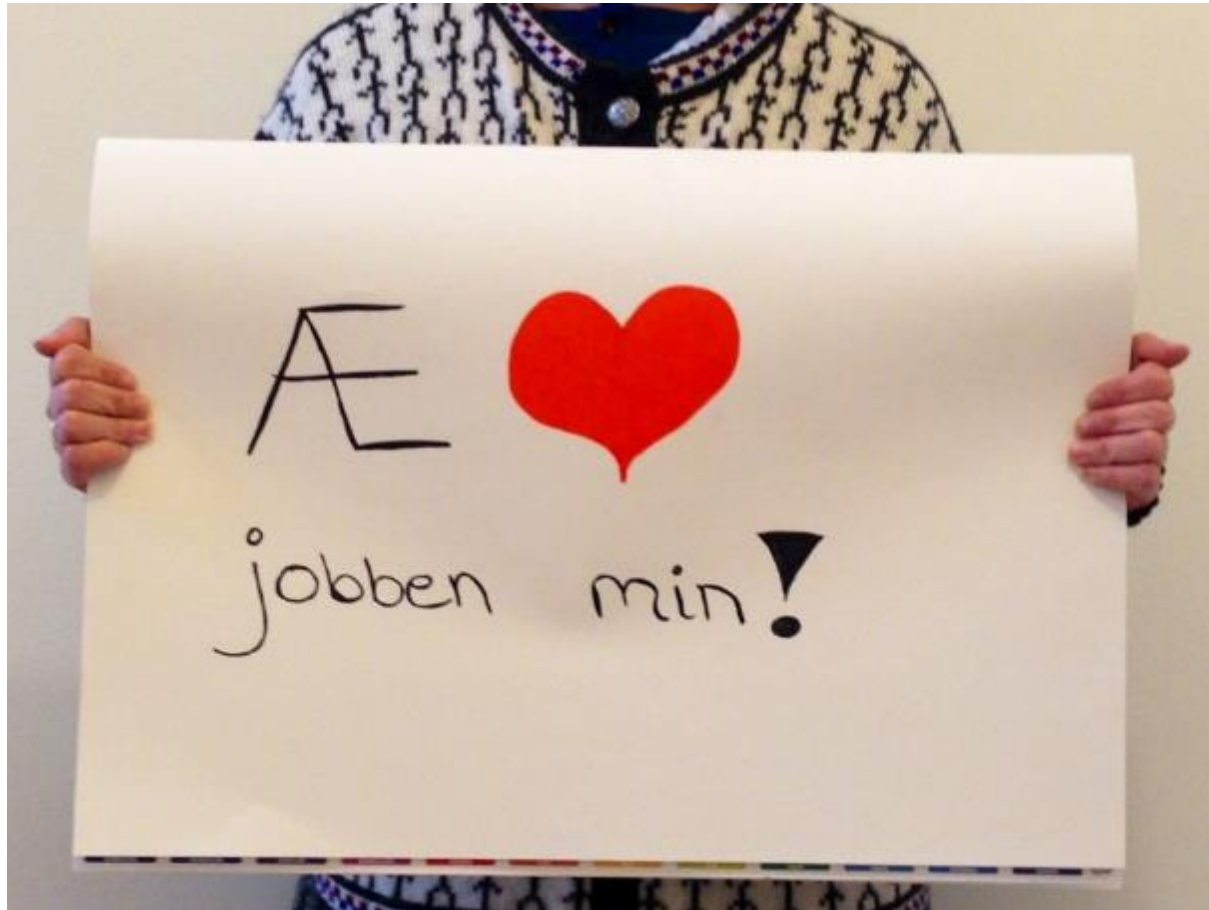 Æ ❤
jobben min!